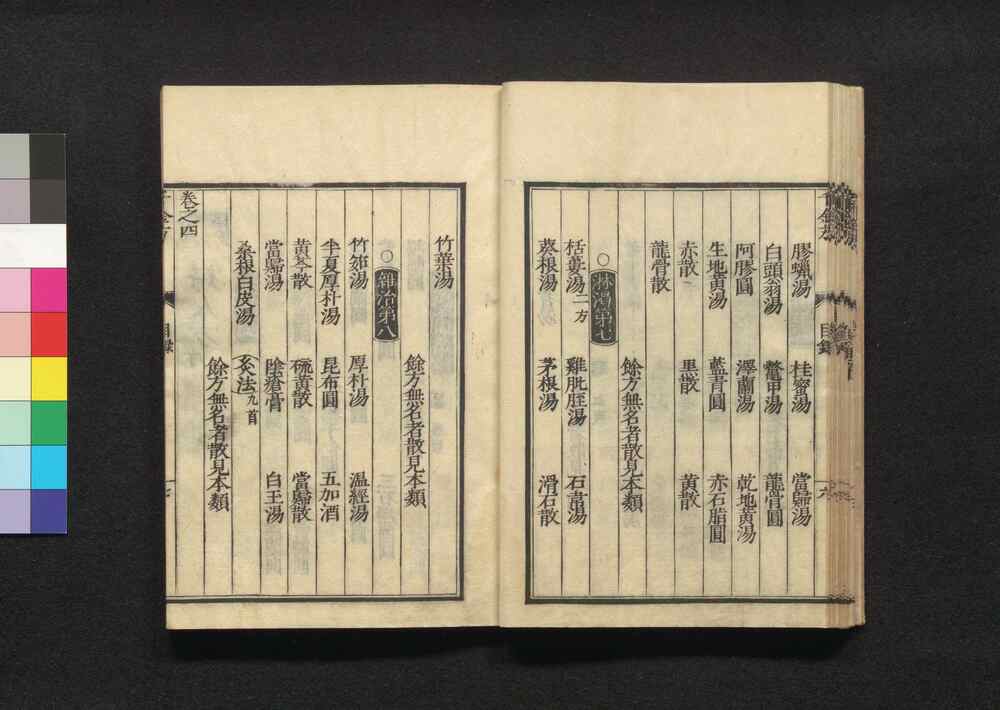 膠蠟湯 桂蜜湯 當歸湯
白頭翁湯 鱉甲湯 龍骨圓
阿膠圓 澤蘭湯 乾地黃湯
生地黃湯 藍青圓 赤石脂圓
赤散 黑散 黃散
龍骨散
餘方無名者散見本類
○淋渴第七
栝蔞湯二方 雞肶胵湯 石韋湯
葵根湯 茅根湯 滑石散
竹葉湯
餘方無名者散見本類
○雜治第八
竹筎湯 厚朴湯 溫經湯
半夏厚朴湯 昆布圓 五加酒
黃芩散 硫黃散 當歸散
當歸湯 陰瘡膏 白玉湯
桑根白皮湯 灸法九首
餘方無名者散見本類
卷之四
目錄